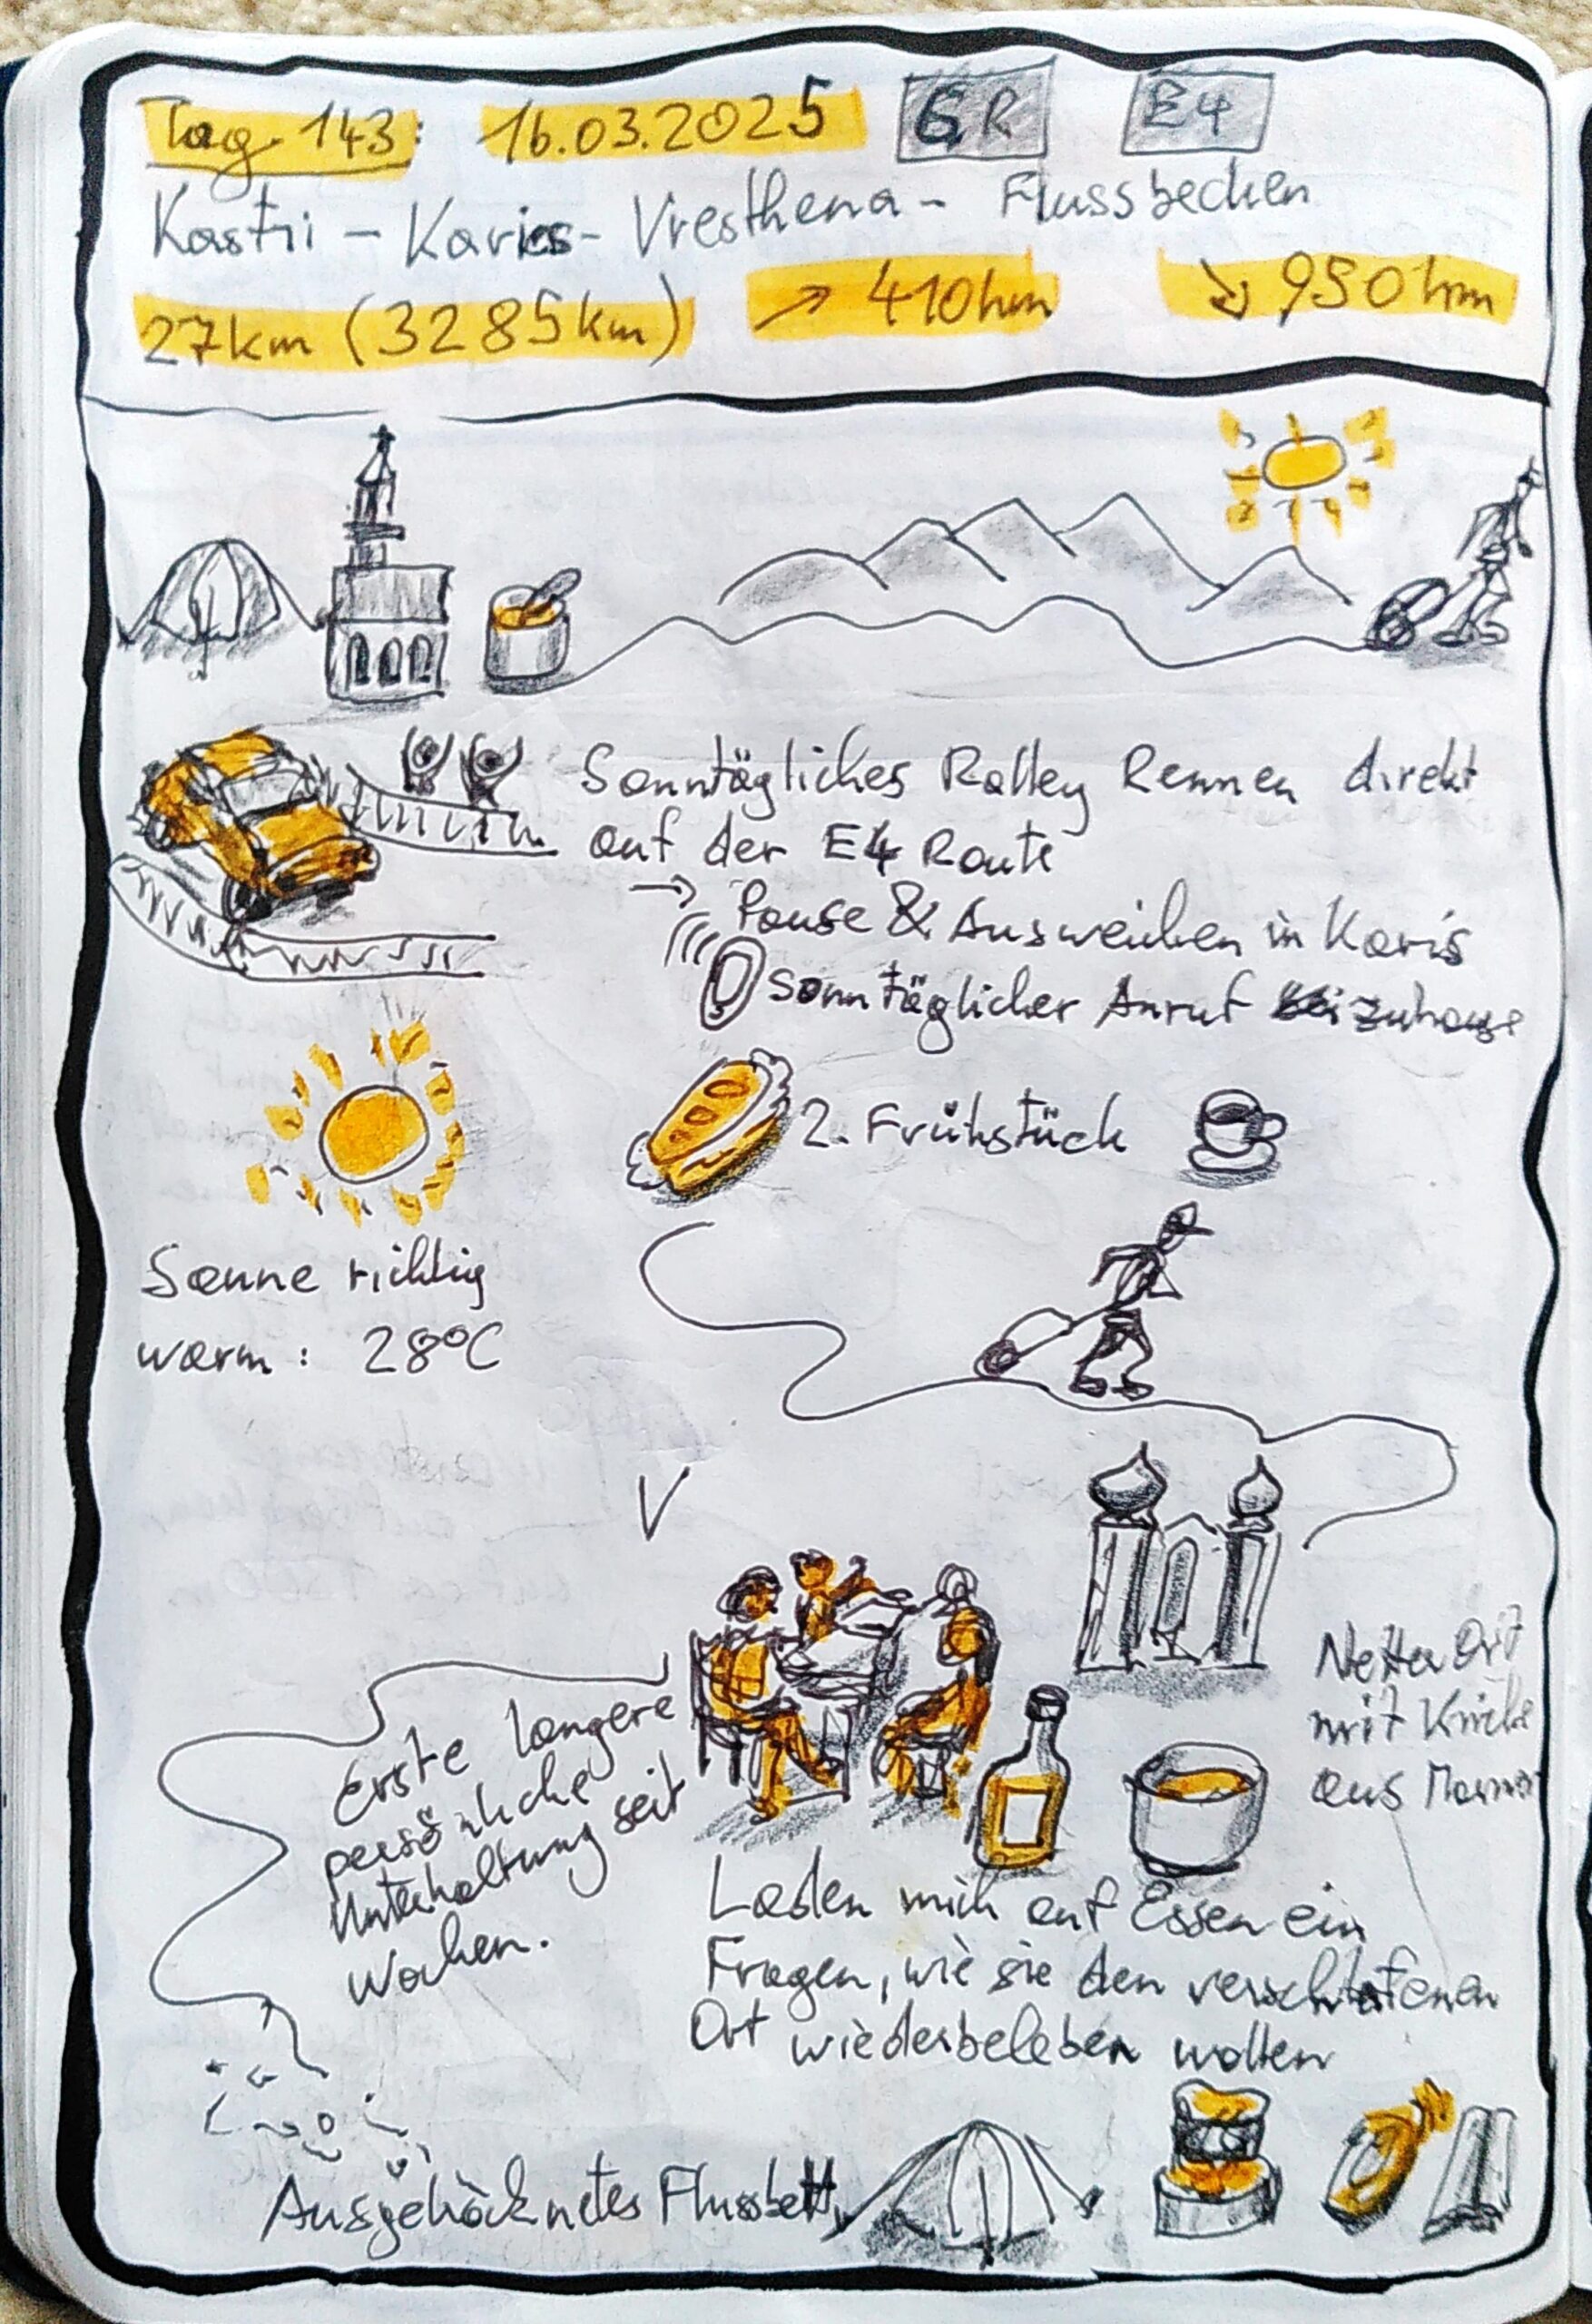 Tag 143: 16.03.2025 GR E4
Kastri - Karies - Vresthena - Flussbecken
27km (3285km) ↗ 410hm ↘ 950hm
Sonntägliches Ralley Rennen direkt
auf der E4 Route
→ Pause & Ausweichen in Karis
Sonntäglicher Anruf zuhause
2. Frühstück
Sonne richtig
warm: 28°C
Netter Ort
mit Kirche
aus Marmor
Erste längere
persönliche
Unterhaltung seit
Wochen.
Laden mich auf Essen ein
Fragen, wie sie den verschlafenen
Ort wiederbeleben wollen
Flussbett